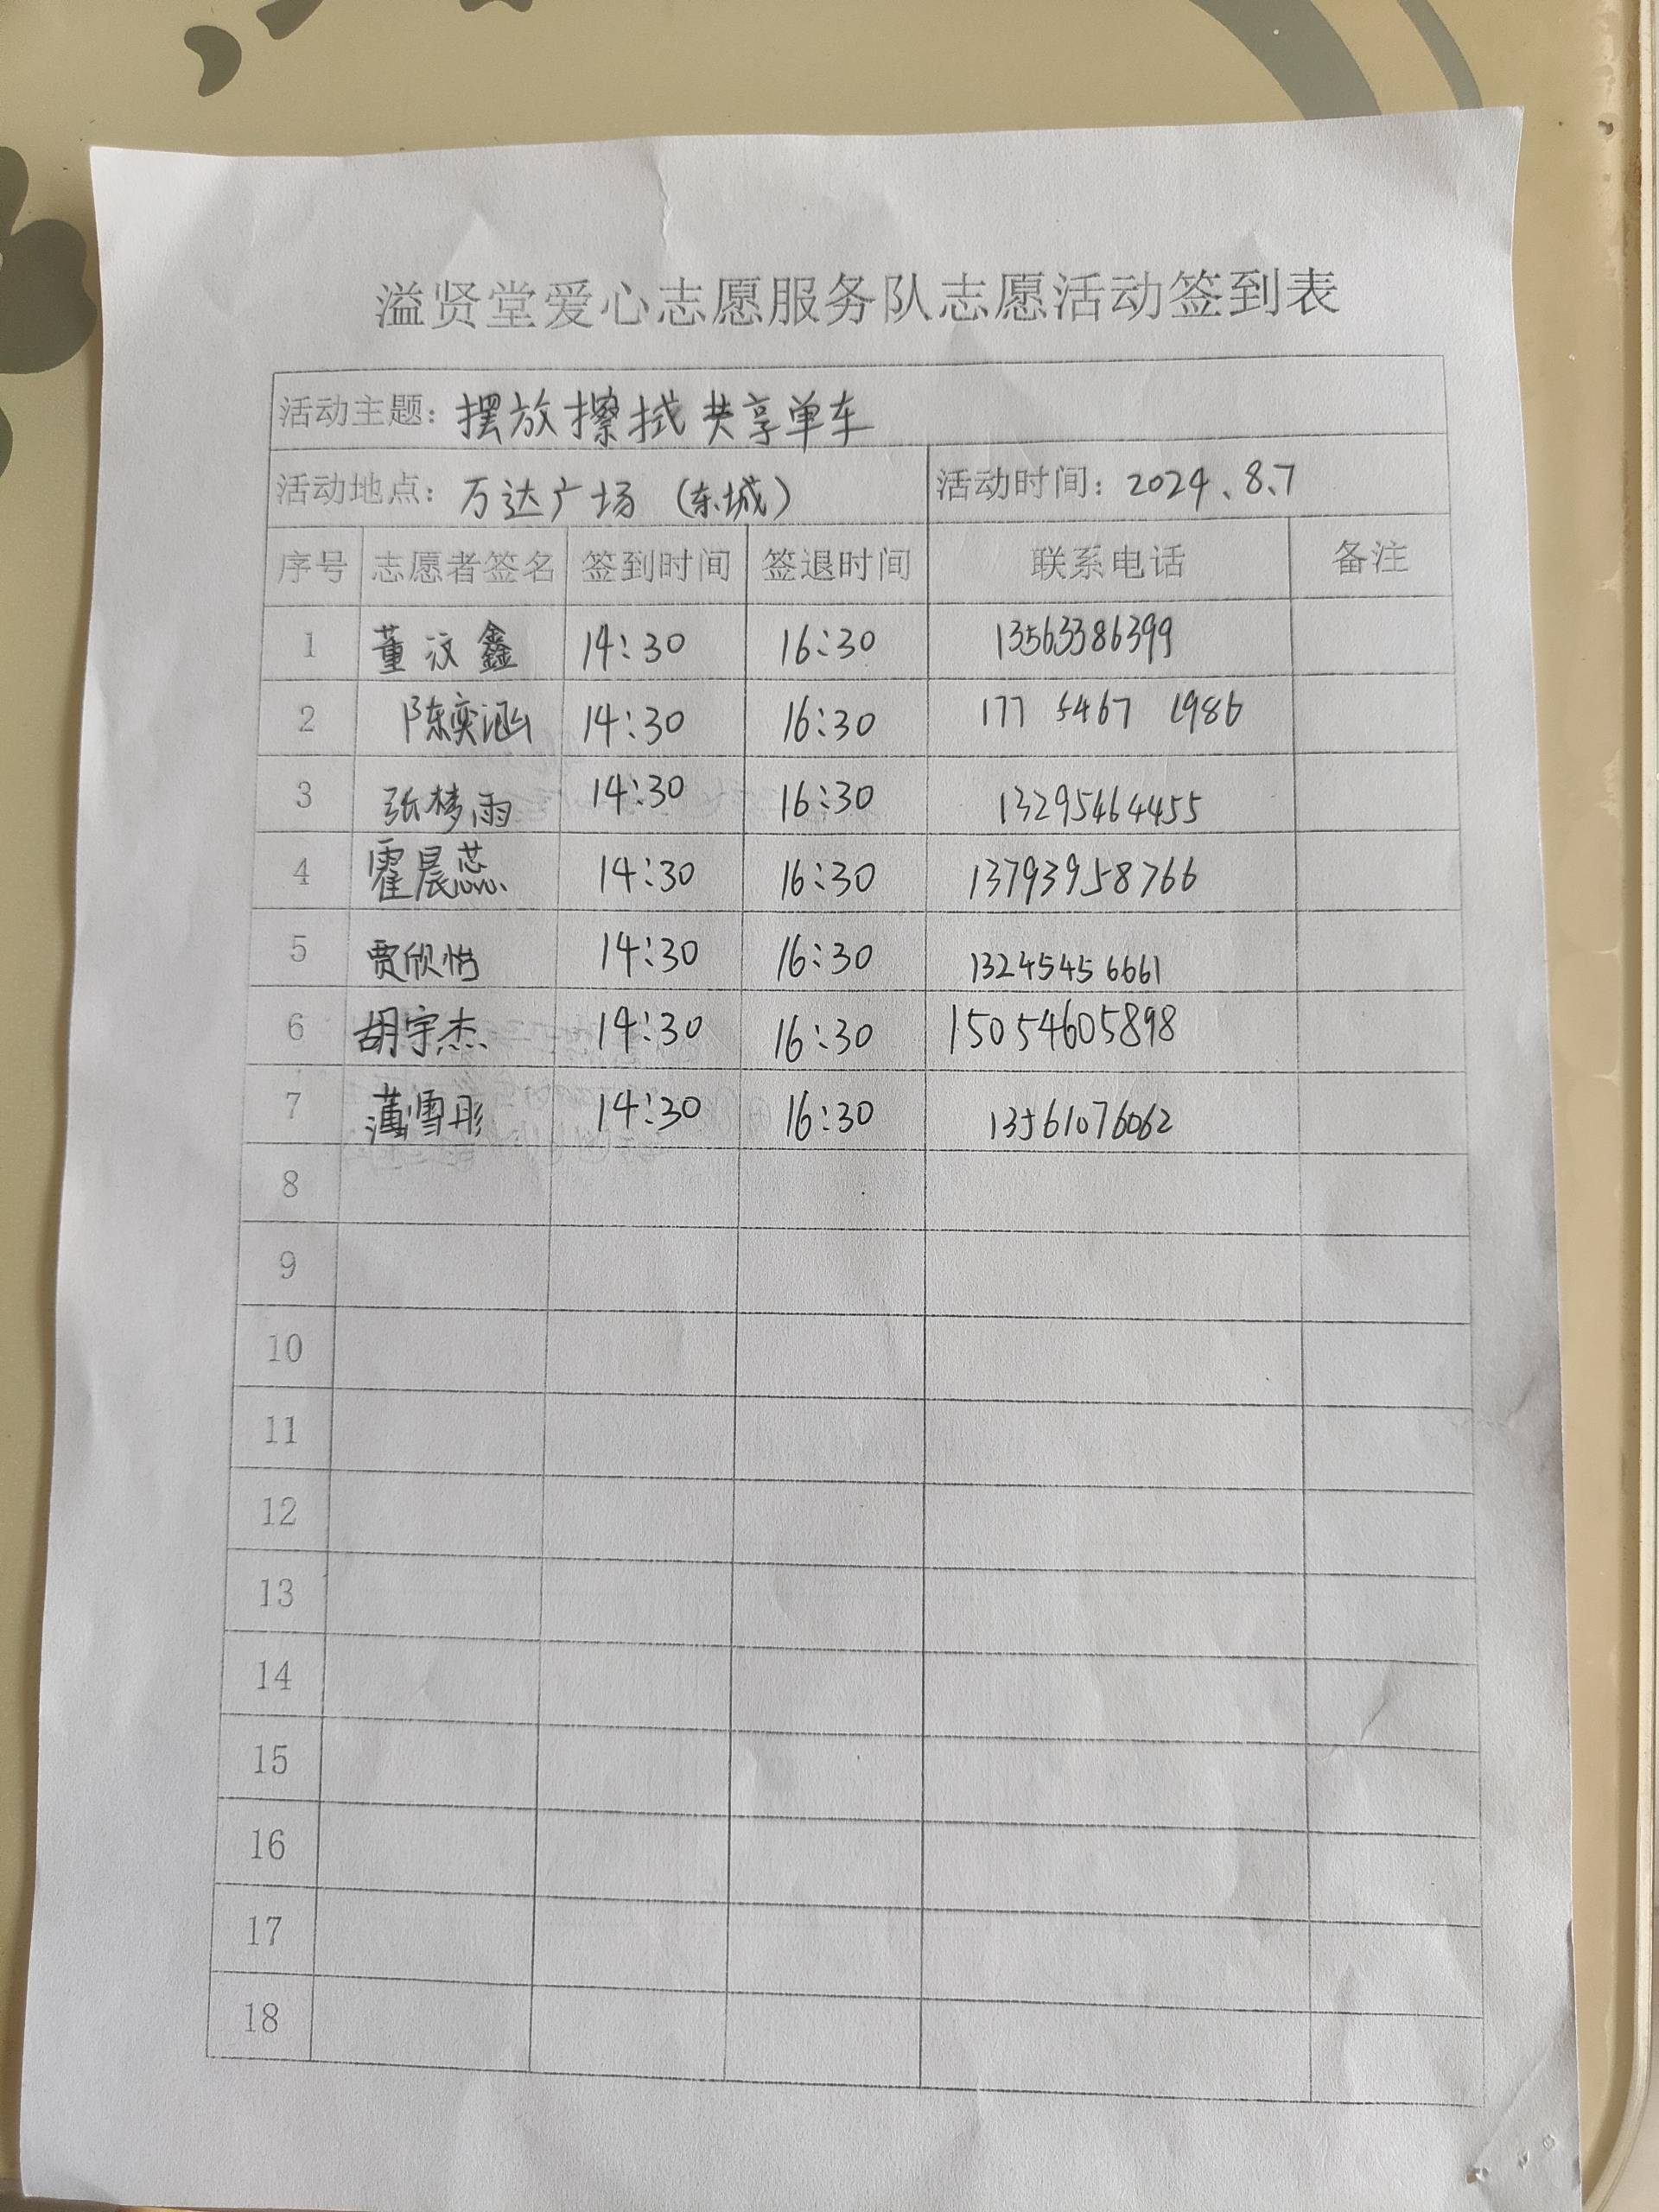 溢贤堂爱心志愿服务队志愿活动签到表
活动主题：摆放擦拭共享单车
活动地点：万达广场（东城） 活动时间：2024、8、7
序号 志愿者签名 签到时间 签退时间 联系电话 备注
1 董汶鑫 14:30 16:30 13563386399
2 陈奕涵 14:30 16:30 177 5467 1986
3 张梦雨 14:30 16:30 13295464455
4 霍晨蕊 14:30 16:30 13793958766
5 贾欣怡 14:30 16:30 13245456661
6 胡宇杰 14:30 16:30 15054605898
7 雪彤 14:30 16:30 13561076062
8
9
10
11
12
13
14
15
16
17
18